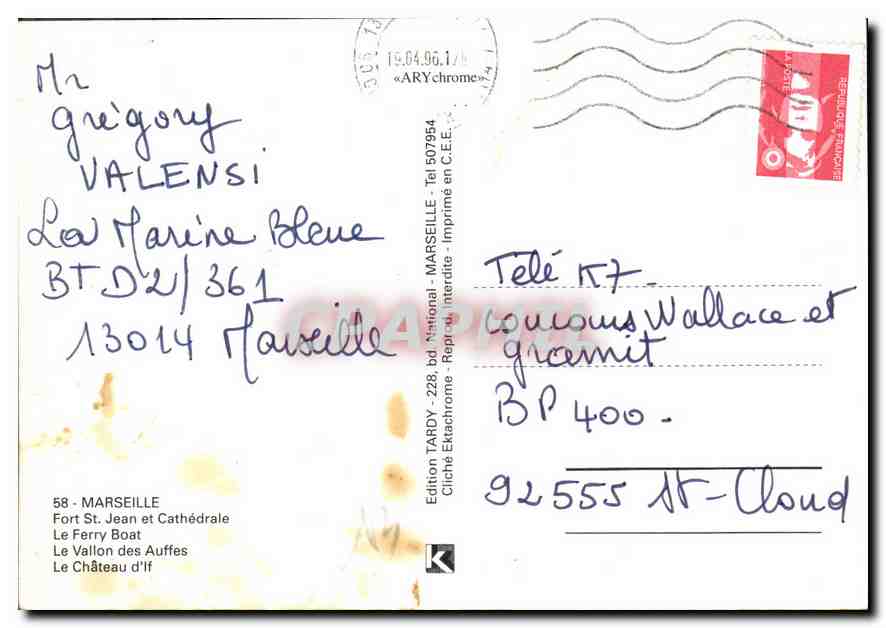 Mr
Grégory
VALENSI
La Marine Bleue
BT D2/361
13014 Marseille
58 - MARSEILLE
Fort St. Jean et Cathédrale
Le Ferry Boat
Le Vallon des Auffes
Le Château d'If
Edition TARDY - 228, bd. National - MARSEILLE - Tel 507954
Cliché Ektachrome - Reprod. Interdite - Imprimé en C.E.E.
«ARYchrome»
K
19.04.96
13
RÉPUBLIQUE FRANÇAISE
LA POSTE
Télé K7 -
concours Wallace et
gromit
BP 400 -
92555 St-Cloud
CPAPHIL